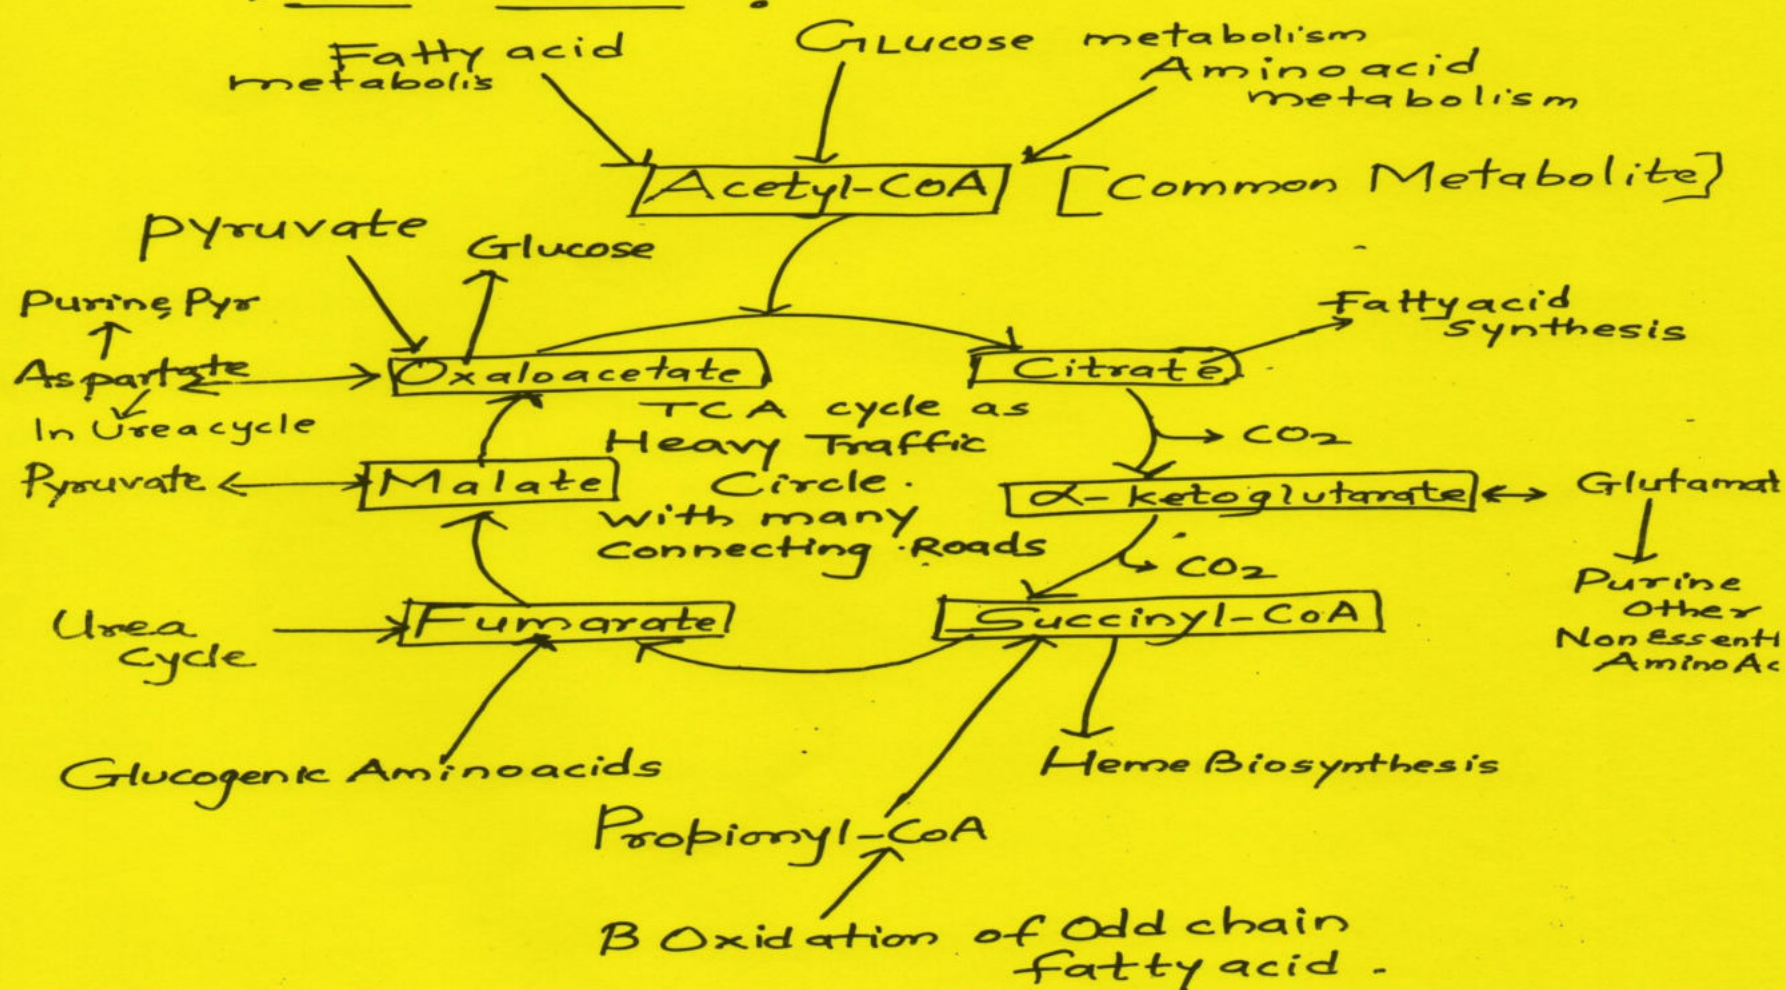 Fatty acid
metabolis
GLucose metabolism
Aminoacid
metabolism
Acetyl-CoA
[Common Metabolite]
Pyruvate
Glucose
Purine, Pyr
Fattyacid
Synthesis
Aspartate
Oxaloacetate
Citrate
In Ureacycle
TCA cycle as
Heavy Traffic
Circle.
with many
Connecting Roads
CO2
Pyruvate
Malate
α-ketoglutarate
Glutamat
CO2
Purine
Other
Non Essenti
Amino Ac
Urea
Cycle
Fumarate
Succinyl-CoA
Glucogenic Aminoacids
Heme Biosynthesis
Propionyl-CoA
B Oxidation of Odd chain
fatty acid.